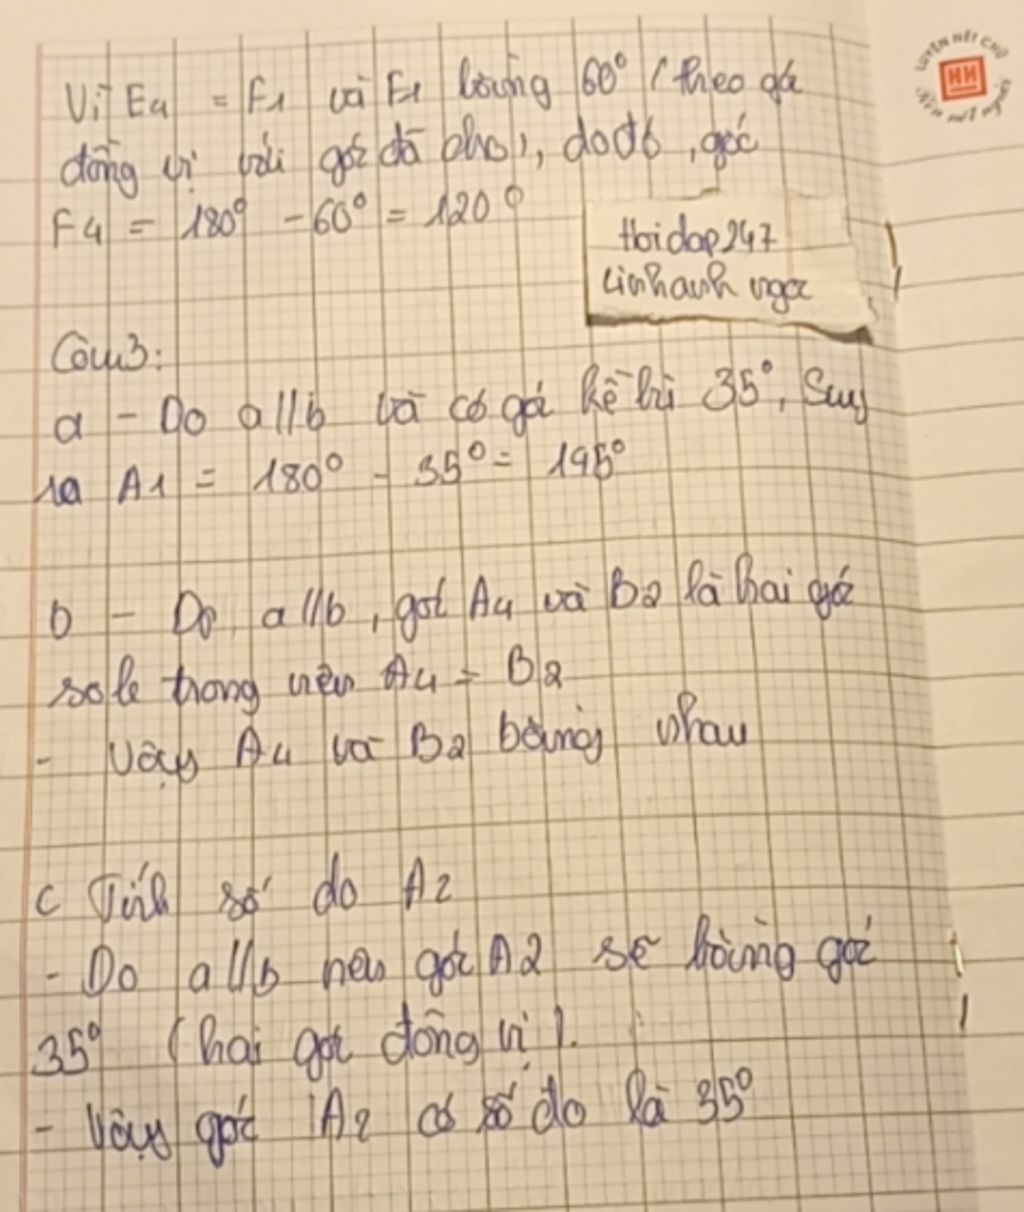 Vì E4 = F1 và F1 bằng 60° (theo góc
đồng vị với góc đã cho), do đó, góc
F4 = 180° - 60° = 120°
Hoidap247
Linhanh ngoc
LUYỆN NÉT CHỮ
HH
Rèn nết người
Câu 3:
a - Do a//b và có góc kề bù 35°, Suy
ra A1 = 180° - 35° = 195°
b - Do a//b, góc A4 và B2 là hai góc
sole trong nên A4 = B2
- Vậy A4 và B2 bằng nhau
c Tính số đo A2
- Do a//b nên góc A2 sẽ bằng góc
35° (hai góc đồng vị).
- Vậy góc A2 có số đo là 35°